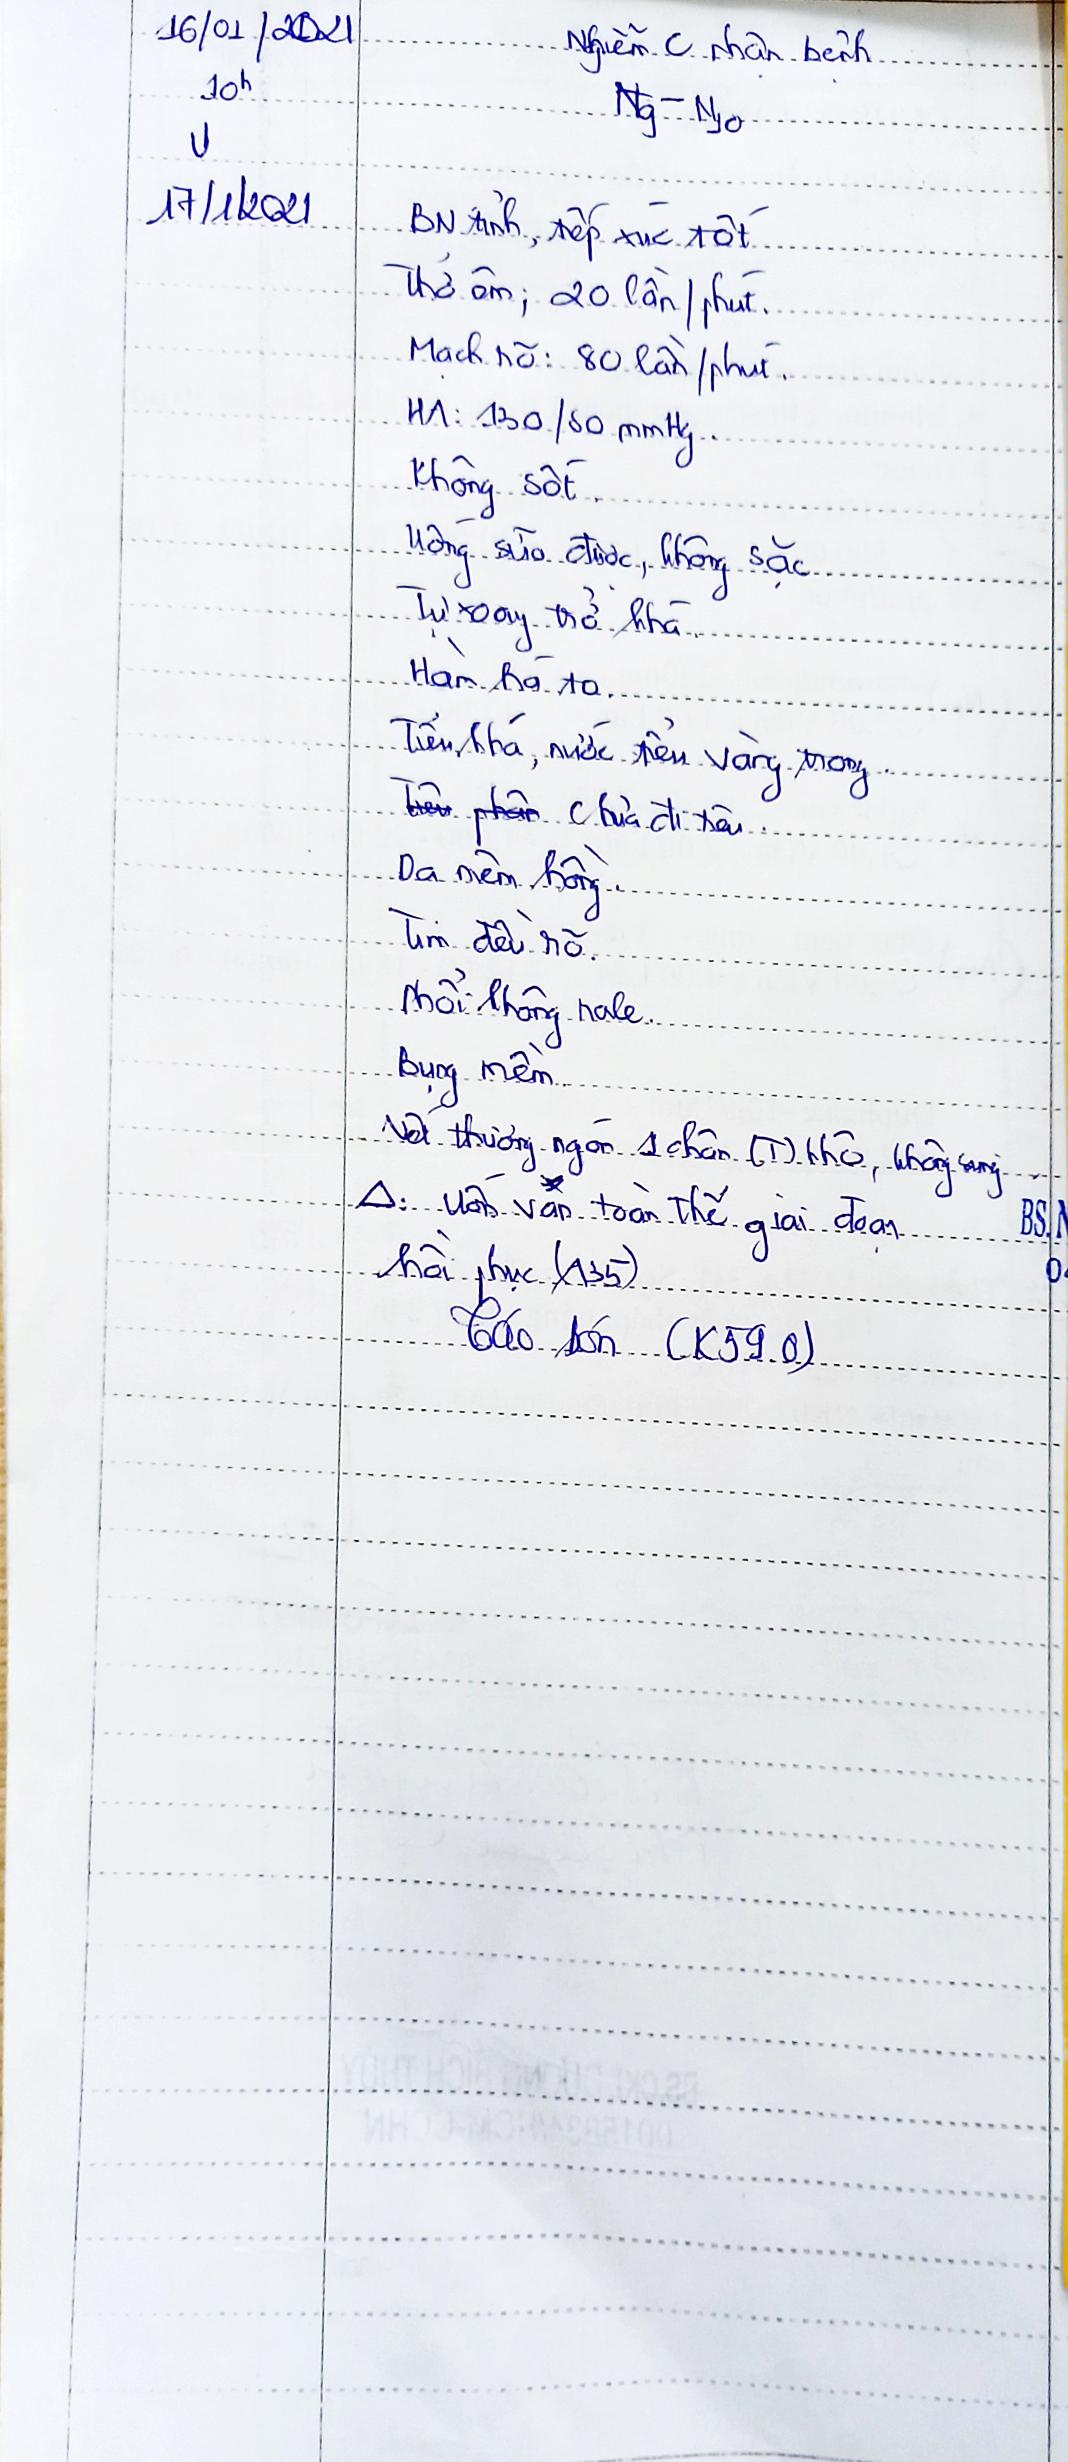 16/01/2021 Nghiễm C nhận bệnh
10h Ng – N10
17/1/2021 BN tỉnh, tiếp xúc tốt
Thở êm; 20 lần/phút.
Mạch rõ: 80 lần/phút.
HA: 130/80 mmHg.
Không sốt.
Uống sữa được, không sặc
Tự xoay trở khá.
Hàm há to.
Tiểu khá, nước tiểu vàng trong.
Tiêu phân Chưa đi tiêu.
Da niêm hồng.
Tim đều rõ.
Phổi không rale.
Bụng mềm
Vết thương ngón 1 chân (T) khô, không sưng
Δ: Uốn ván toàn thể giai đoạn
hồi phục (A35)
Táo bón (K59.0)
BS.N
04